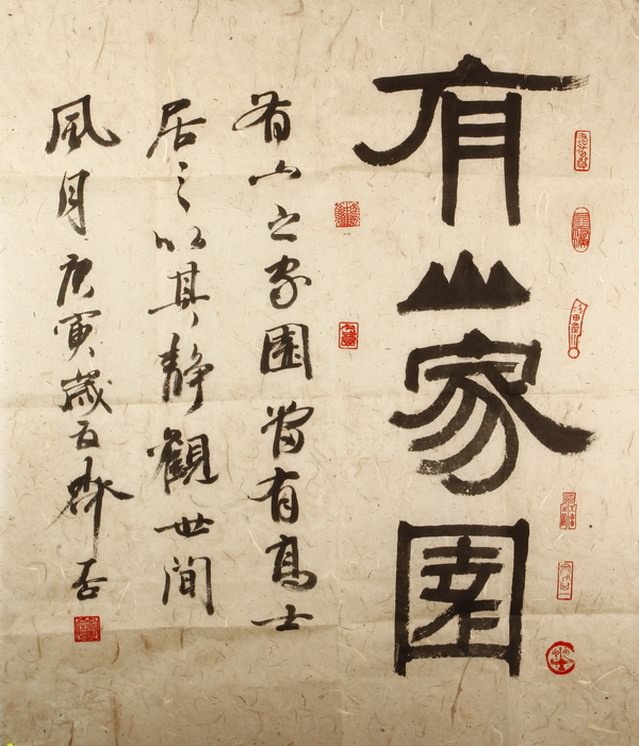 有山家園
有山之家園當有高士
居之以其靜觀世間
風月庚寅歲